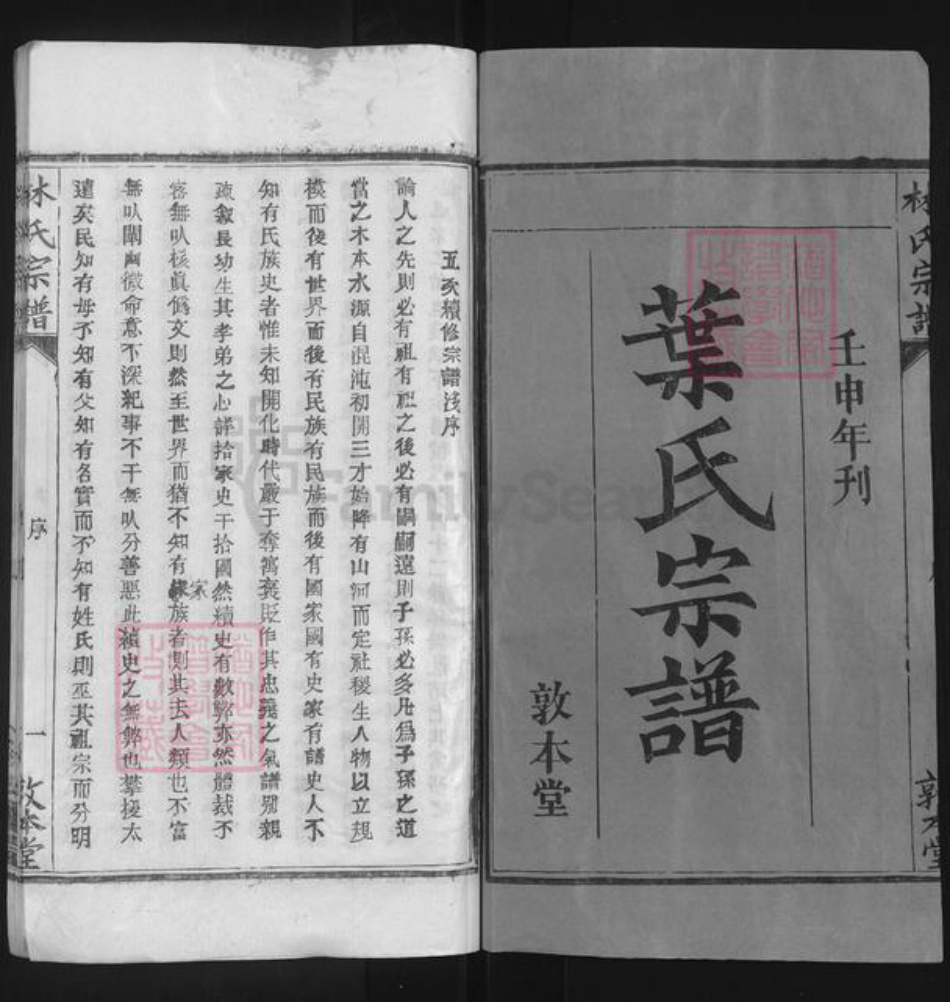 壬申年刊
葉氏宗譜
敦本堂
五次續修宗譜淺序
論人之先則必有祖有祖之後必有嗣嗣遠則子孫必多凡爲子孫之道
當之木本水源自混沌初開三才始降有山河而定社稷生人物以立規
模而後有世界而後有民族有民族而後有國家國有史家有譜史人不
知有氏族史者惟未知開化時代嚴于奪寓褒貶作其忠義之氣譜別親
疎敘長幼生其孝弟之心譯拾家史干拾國然續史有數弊亦然體裁不
容無以核眞僞文則然至世界而猶不知有家族者則其去人類也不富
無以闡幽微命意不深紀事不干無以分善惡此續史之無弊也攀援太
遠矣民知有母不知有父知有名實而不知有姓氏則巫其祖宗而分明
林氏宗譜
序
一
敦本堂